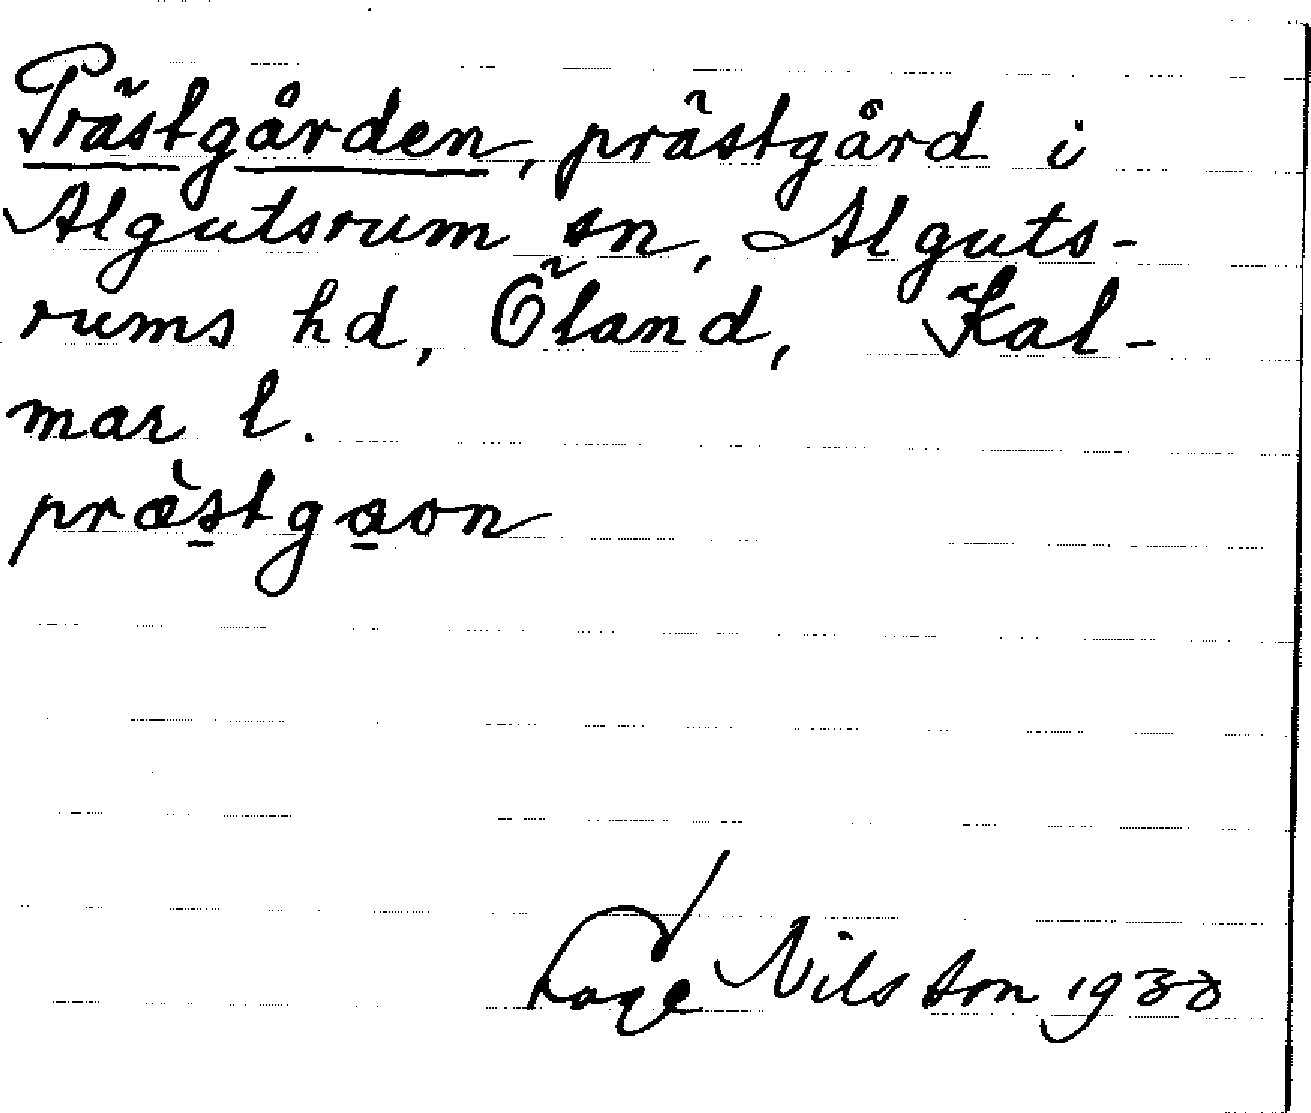 Prästgården, prästgård i
Algutsrum sn, Alguts-
rums hd, Öland, Kal-
mar l.
præ̀s̱tga̱on
Nilsson 1930